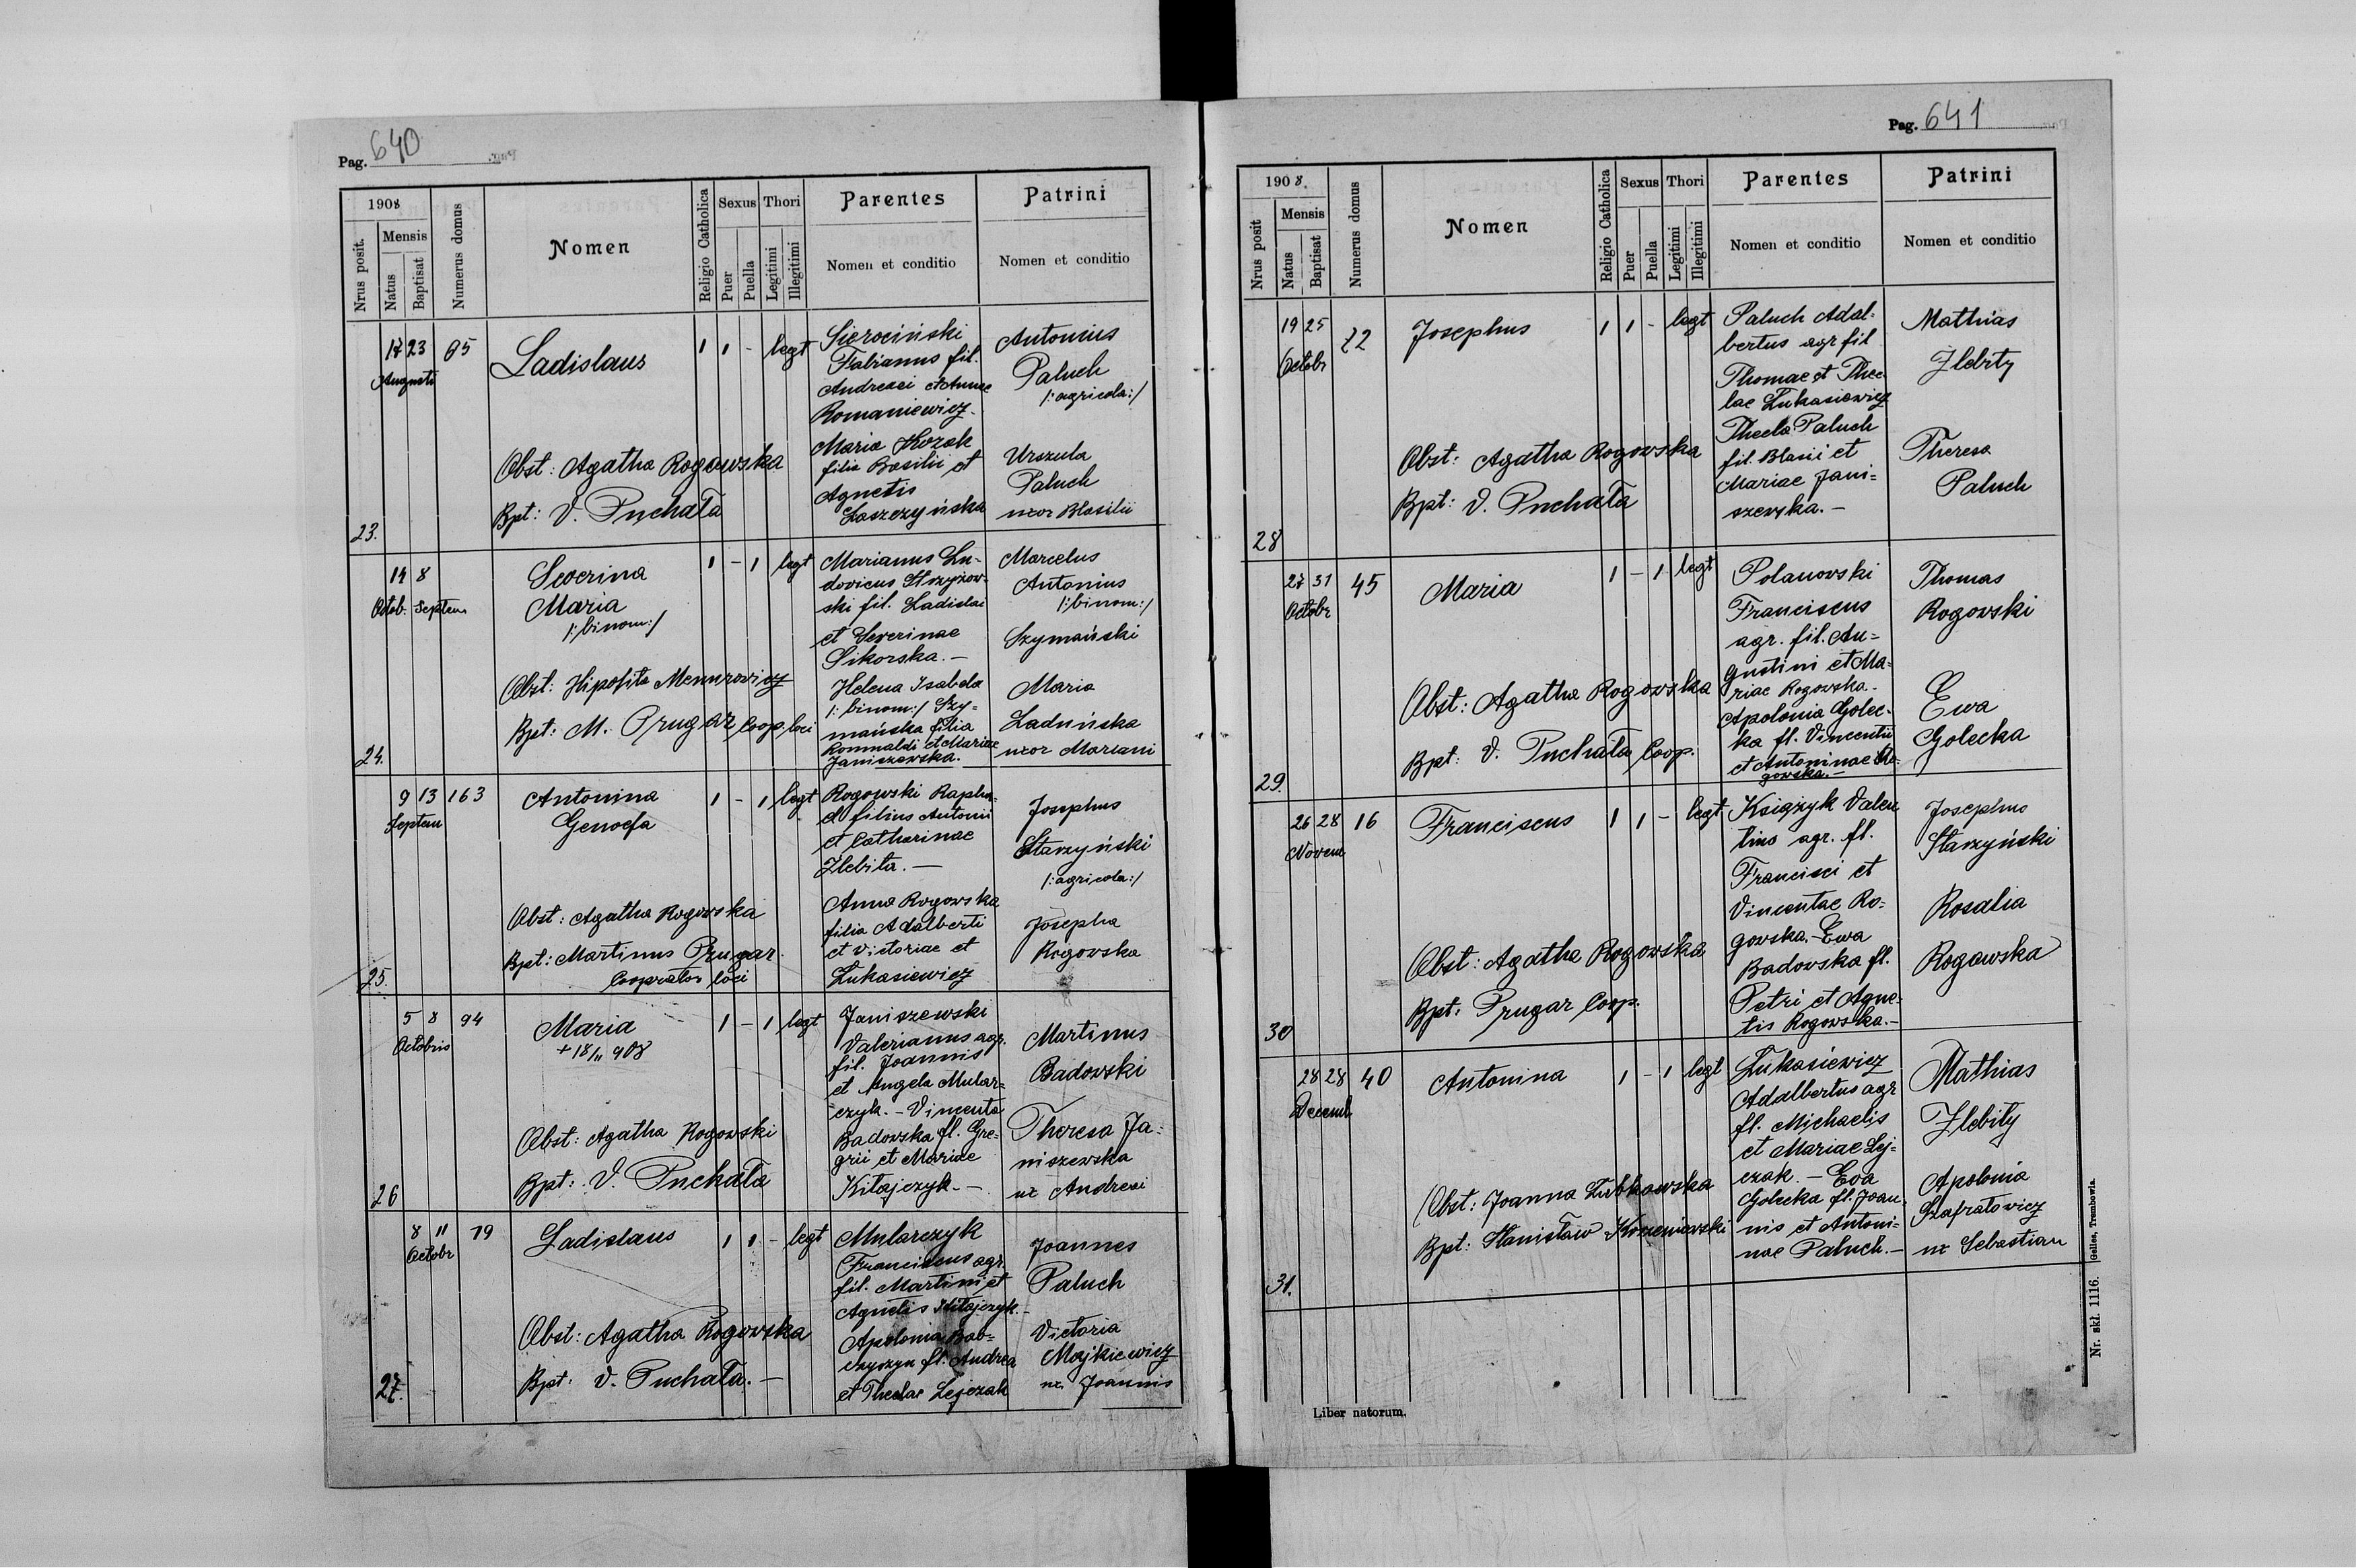 Pag. 640
1908
Nrus posit.
Mensis
Natus
Baptisat
Numerus domus
Nomen
Religio Catholica
Sexus
Puer
Puella
Thori
Legitimi
Illegitimi
Parentes
Nomen et conditio
Patrini
Nomen et conditio
23.
17 23
Augusti
Ladislaus
1 1 - legt
Obst: Agatha Rogowska
Bpt: V. Puchała
Sierociński
Fabianus fil.
Andreaei et Annae
Romaniewicz.
Maria Kozak
filia Basilii et
Agnetis
Łaszczyńska
Antonius
Paluch
/:agricola:/
Urszula
Paluch
uxor Blasilii
24.
14 8
Octob. Septem
Severina
Maria
/:binom:/
1 - 1 legt
Obst: Hipolita
Bpt: M. Prugar Coop. loci
Marianus Lu-
dovicus Strzyżow-
ski fil. Ladislai
et Severinae
Sikorska. -
Helena Isabela
/:binom:/ Szy-
mańska filia
Romualdi et Mariae
Janiszewska.
Marcelus
Antonius
/:binom:/
Szymański
Maria
Laduńska
uxor Mariani
25.
9 13 163
Septem
Antonina
Genoefa
1 - 1 legt
Obst: Agatha Rogowska
Bpt: Martinus Prugar
Cooprator loci
Rogowski Rapha-
el filius Antonii
et Catharinae
Żlebita. -
Anna Rogowska
filia Adalberti
et Victoriae et
Łukasiewicz
Josephus
Starzyński
/:agricola:/
Josepha
Rogowska
26
5 8 94
Octobris
Maria
+ 18/11 908
1 - 1 legt
Obst: Agatha Rogowski
Bpt: V. Puchała
Janiszewski
Valerianus agr.
fil. Joannis
et Angela Mular-
czyk. - Vincenta
Badowska fl. Gre-
grii et Mariae
Kitajczyk. -
Martinus
Badowski
Theresa Ja-
niszewska
ux Andreai
27.
8 11 79
Octobr
Ladislaus
1 1 - legt
Obst: Agatha Rogowska
Bpt: V. Puchała. -
Mularczyk
Franciscus agr
fil. Martini et
Agnetis Kitajczyk. -
Apolonia Bab-
czyszyn fl. Andrea
et Theclae Lejczak
Joannes
Paluch
Victoria
Majkiewicz
ux. Joannis
Pag. 641
1908.
Nrus posit
Mensis
Natus
Baptisat
Numerus domus
Nomen
Religio Catholica
Sexus
Puer
Puella
Thori
Legitimi
Illegitimi
Parentes
Nomen et conditio
Patrini
Nomen et conditio
28
19 25 72
Octobr
Josephus
1 1 - legt
Obst: Agatha Rogowska
Bpt: V. Puchała
Paluch Adal-
bertus agr fil
Thomae et Thec-
lae Łukasiewicz
Thecla Paluch
fil. Blasii et
Mariae Jani-
szewska. -
Mathias
Żlebity
Theresa
Paluch
29.
27 31 45
Octobr
Maria
1 - 1 legt
Obst: Agatha Rogowska
Bpt: V. Puchała Coop.
Polanowski
Franciscus
agr. fil. Au-
gustini et Ma-
riae Rogowska -
Apolonia Golec-
ka fl. Vincentii
et Antoninae Ro-
gowska. -
Thomas
Rogowski
Ewa
Golecka
30
26 28 16
Novem
Franciscus
1 1 - legt
Obst: Agatha Rogowska
Bpt: Prugar Coop.
Książyk Valen
tins agr. fl.
Francisci et
Vincentae Ro-
gowska. - Ewa
Badowska fl.
Petri et Agne-
tis Rogowska. -
Josephus
Starzyński
Rosalia
Rogowska
31.
28 28 40
Decemb
Antonina
1 - 1 legt
Obst: Joanna Łubkowska
Bpt: Stanisław Korzeniowski
Łukasiewicz
Adalbertus agr
fl. Michaelis
et Mariae Lej-
czak. - Eva
Golecka fl. Joan-
nis et Antoni-
nae Paluch. -
Mathias
Żlebity
Apolonia
Szafratowicz
ux Sebastian
Liber natorum.
Nr. skł. 1116. Gelles, Trembowla.